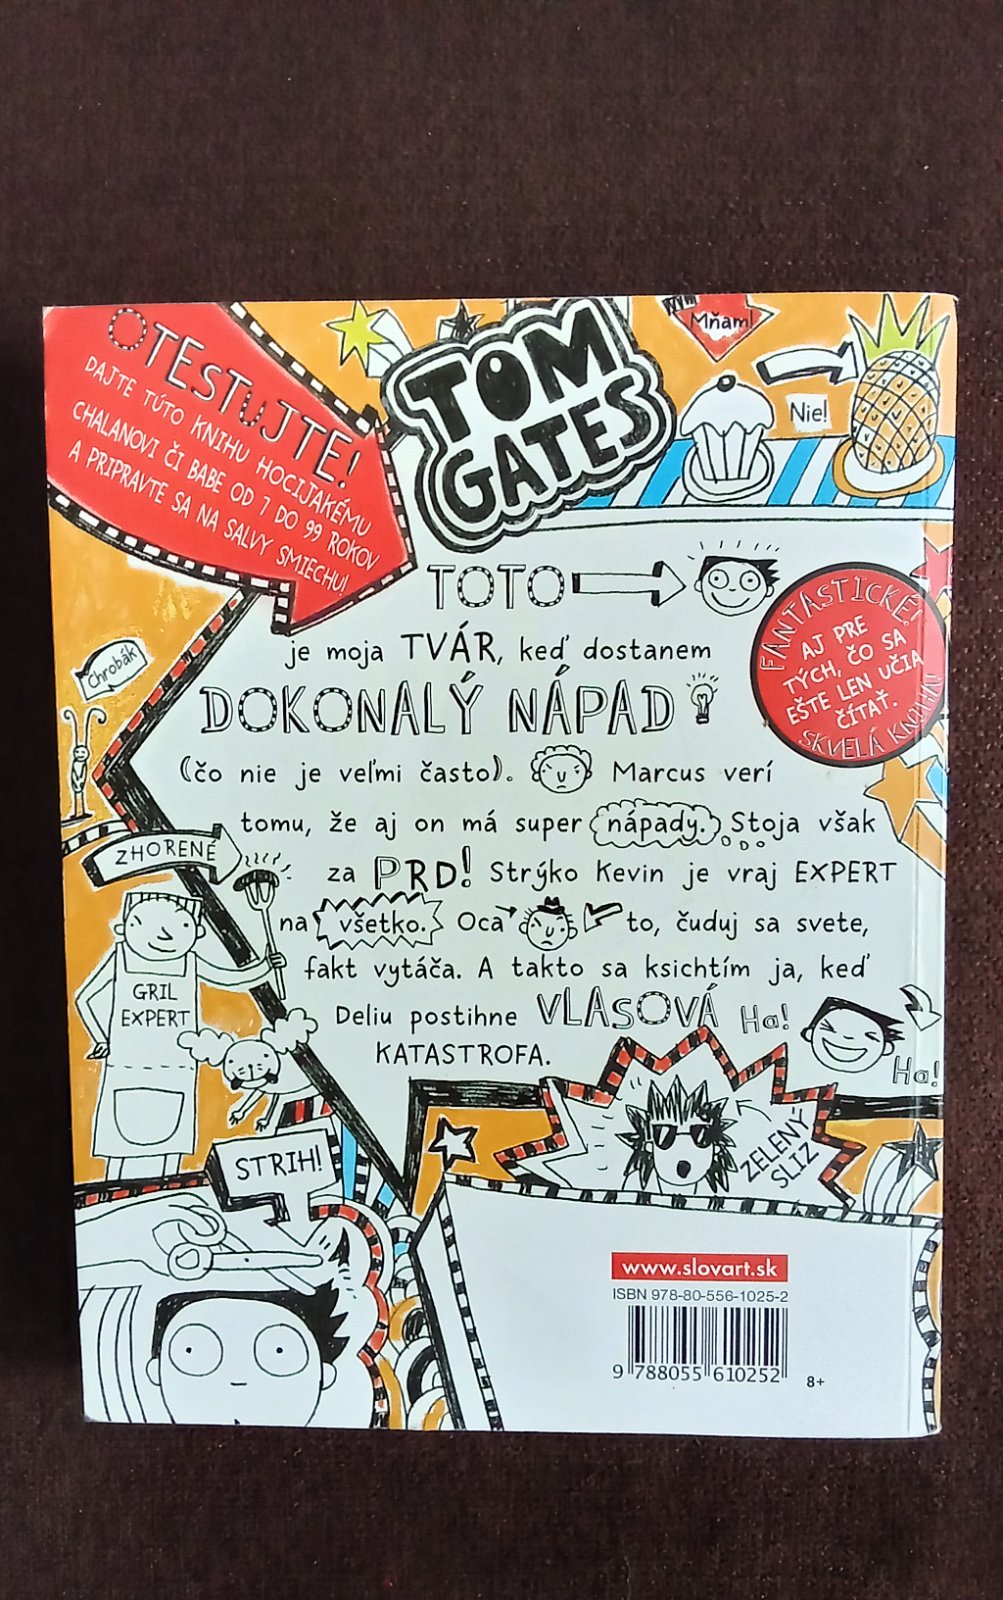 OTESTUJTE!
DAJTE TÚTO KNIHU HOCIJAKÉMU
CHALANOVI ČI BABE OD 7 DO 99 ROKOV
A PRIPRAVTE SA NA SALVY SMIECHU!
TOM
GATES
Mňam!
Nie!
TOTO
je moja TVÁR, keď dostanem
DOKONALÝ NÁPAD
(čo nie je veľmi často). Marcus verí
tomu, že aj on má super nápady. Stoja však
za PRD! Strýko Kevin je vraj EXPERT
na všetko. Oca to, čuduj sa svete,
fakt vytáča. A takto sa ksichtím ja, keď
Deliu postihne VLASOVÁ Ha!
KATASTROFA.
Ha!
FANTASTICKÉ!
AJ PRE
TÝCH, ČO SA
EŠTE LEN UČIA
ČÍTAŤ.
SKVELÁ KNIHA!
Chrobák
ZHORENÉ
GRIL
EXPERT
STRIH!
ZELENÝ
SLIZ
www.slovart.sk
ISBN 978-80-556-1025-2
9 788055 610252
8+